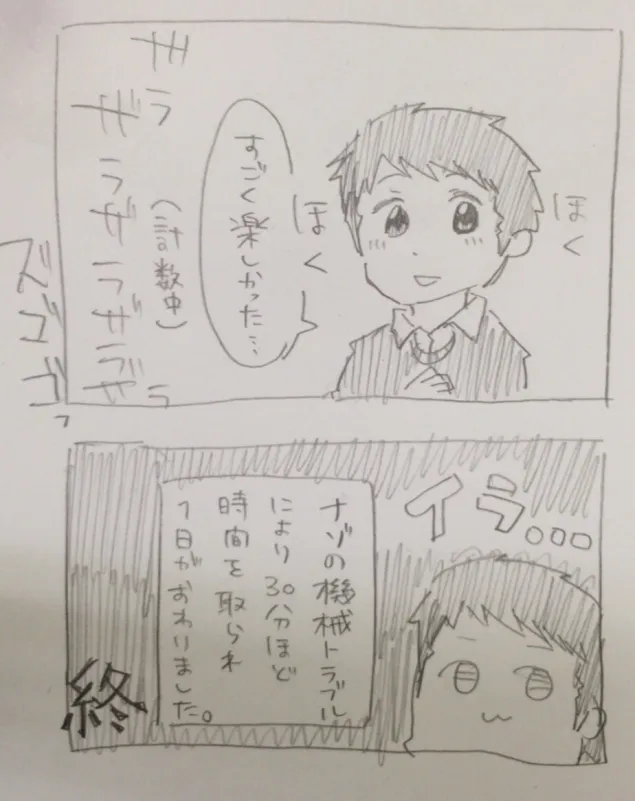 ほく
ほく
すごく楽しかった…
(計数中)
ザラ
ザラザラザラザラ
ズゴゴゴ
イラ。。。
ナゾの機械トラブル
により30分ほど
時間を取られ
1日がおわりました。
終